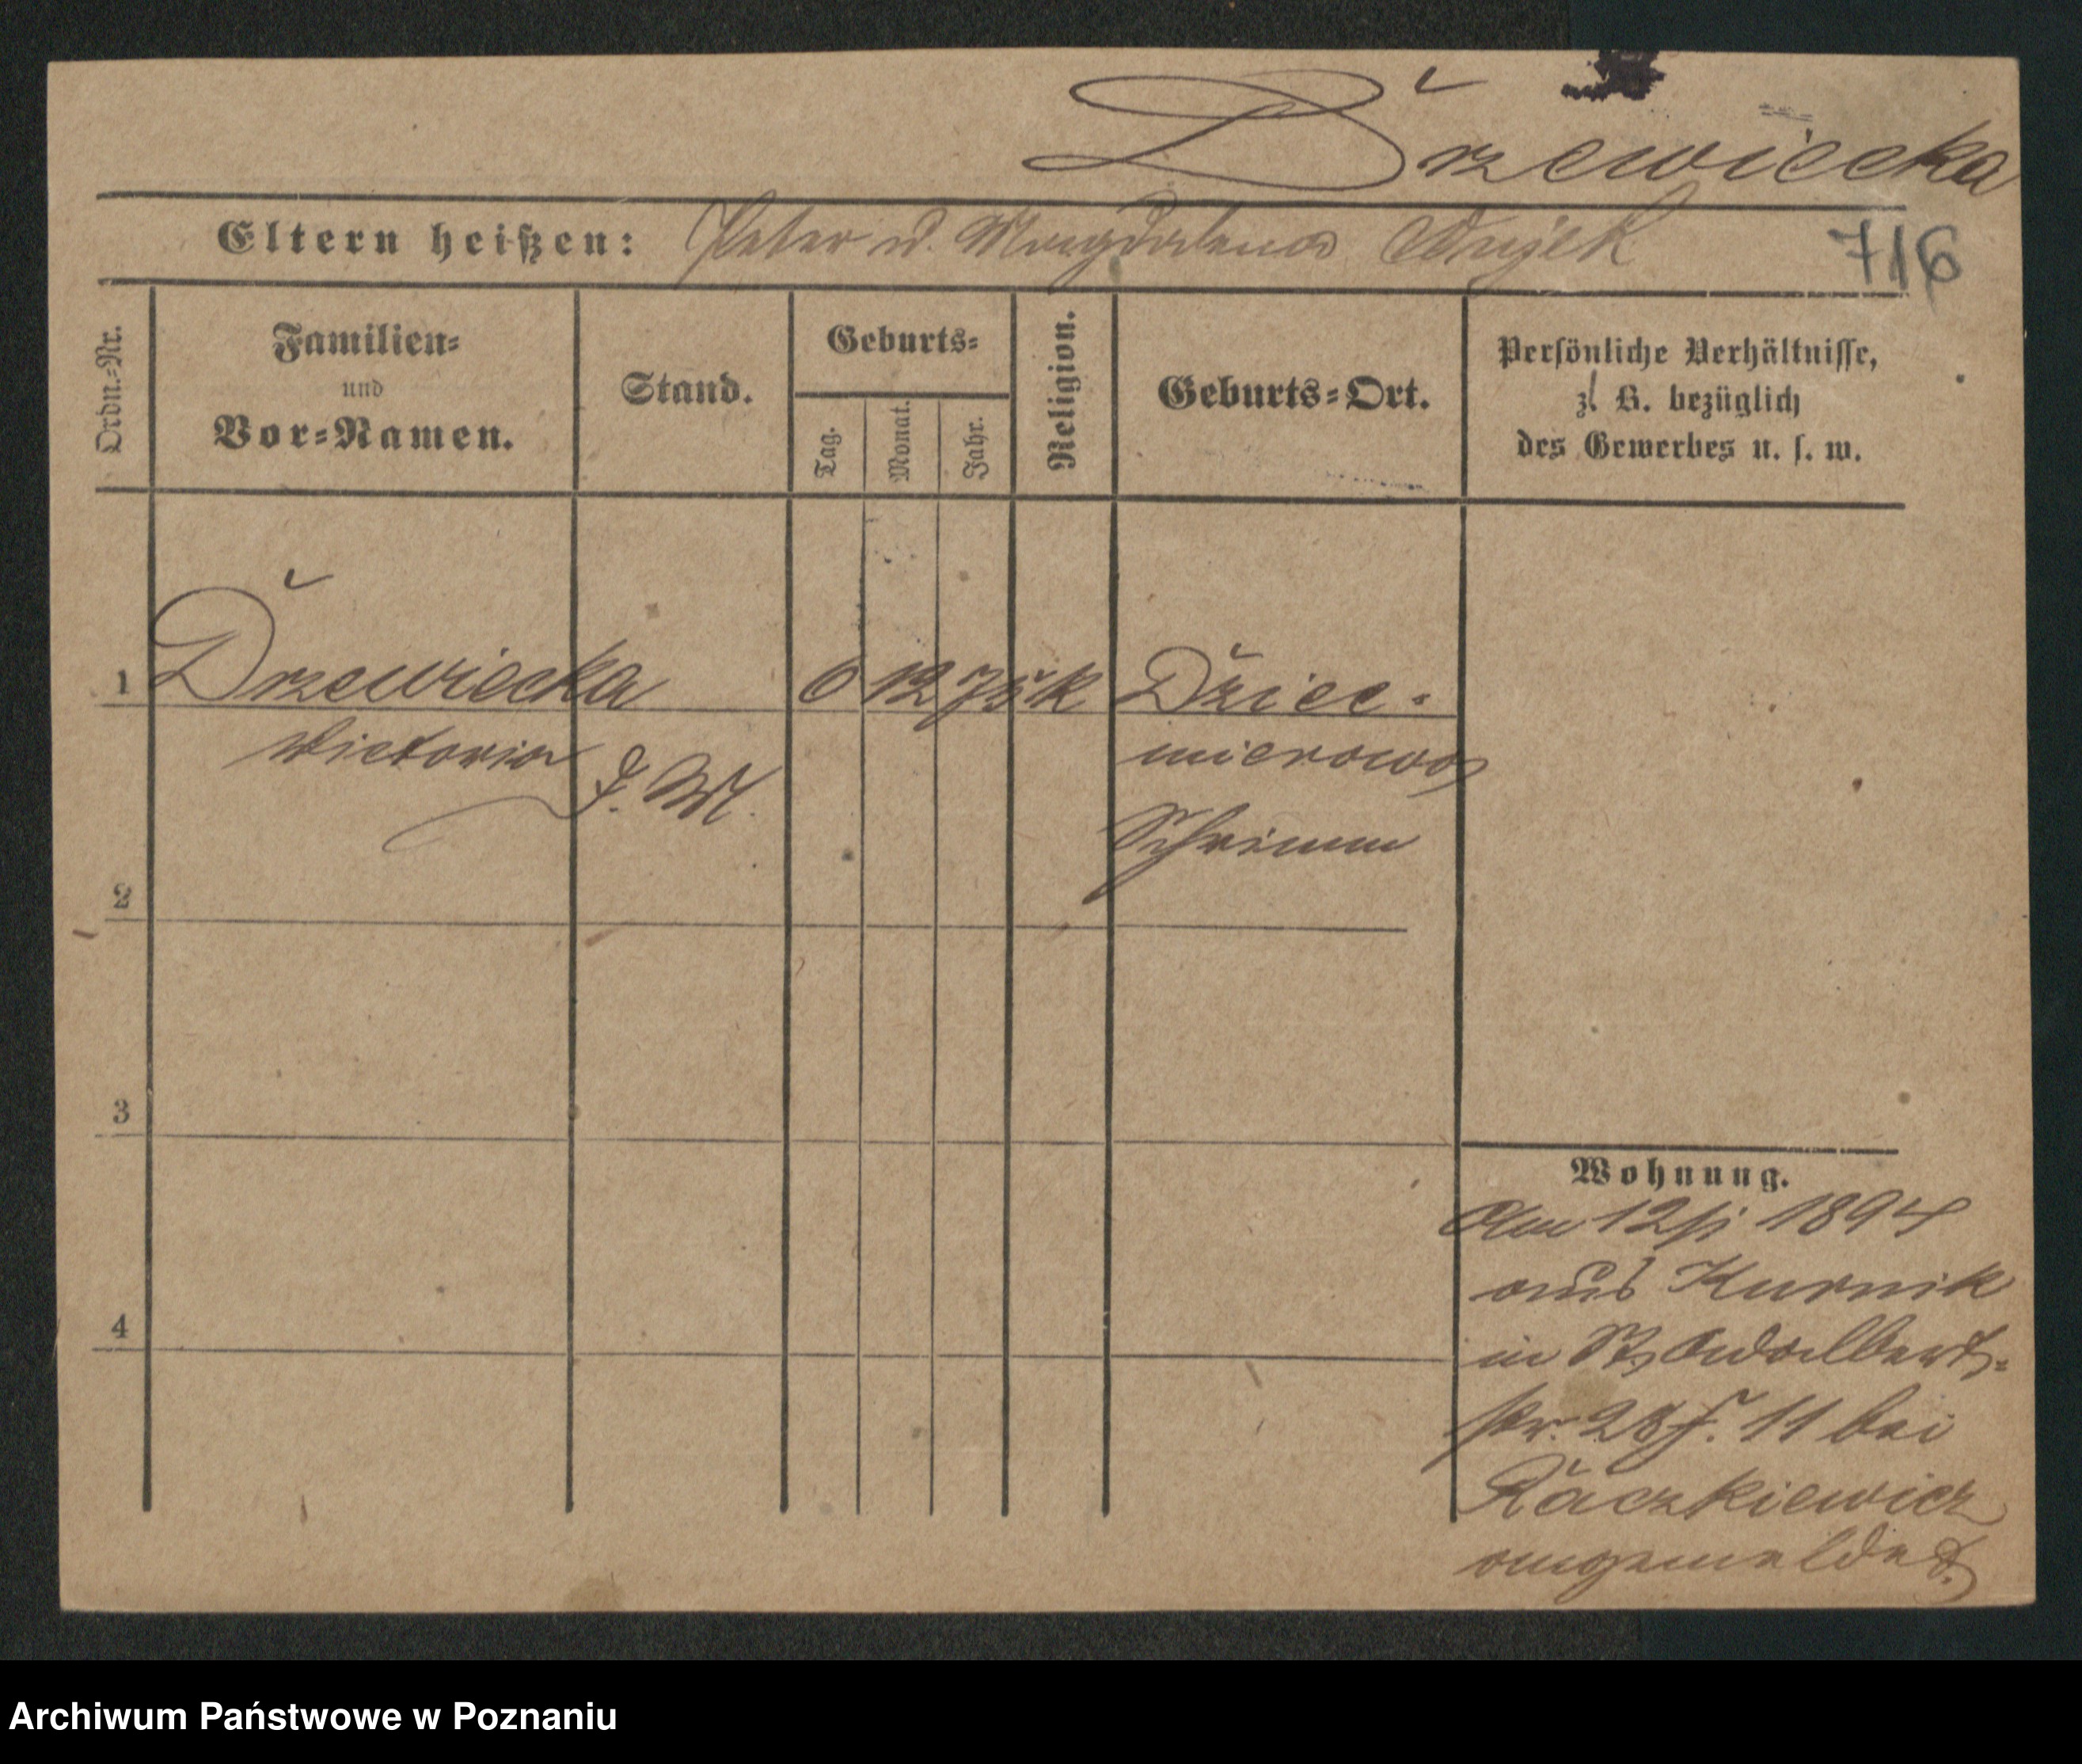 Drzewiecka
Eltern heißen: Peter u. Magdalena
716
Ordn.-Nr.
Familien-
und
Vor-Namen.
Stand.
Geburts-
Tag.
Monat.
Jahr.
Religion.
Geburts-Ort.
Persönliche Verhältnisse,
z. B. bezüglich
des Gewerbes u. s. w.
1 Drzewiecka 6 12 75 K Dziec-
Victoria D. M. mierowo
Schrimm
2
3
4
Wohnung.
Am 12/1 1894
aus Kurnik
in St. Adalbert-
str. 28 f. 11 bei
Raczkiewicz
angemeldet.
Archiwum Państwowe w Poznaniu